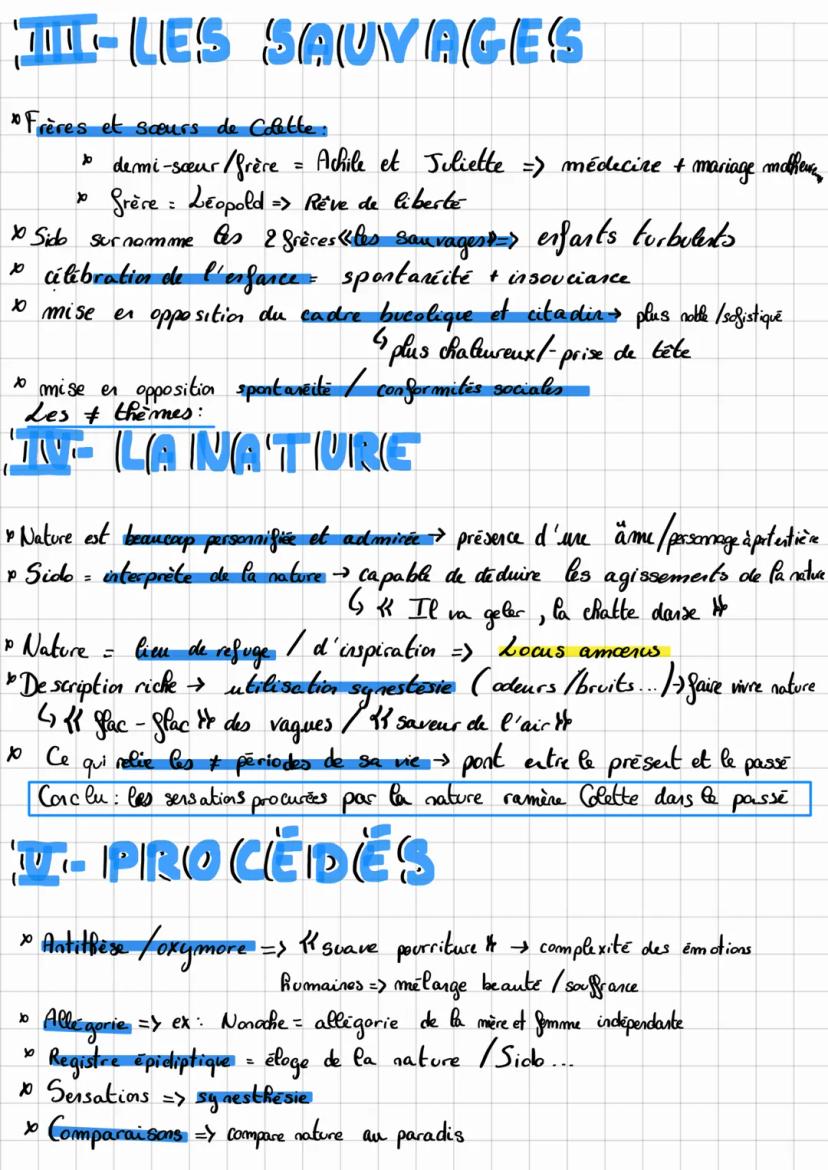 III-LES SAUVAGES
* Frères et sœurs de Colette:
* demi-sœur/frère = Achile et Juliette => médecine + mariage malheureux
* frère = Léopold => Rêve de liberté
* Sido surnomme les 2 frères «les sauvages» => enfants turbulents
* célébration de l'enfance = spontanéité + insouciance
* mise en opposition du cadre bucolique et citadin → plus noble/sofistiqué
↳ plus chaleureux/- prise de tête
* mise en opposition spontanéité / conformités sociales
Les ≠ thèmes:
IV- LA NATURE
* Nature est beaucoup personnifiée et admirée → présence d'une âme/personnage à part entière
* Sido = interprète de la nature → capable de déduire les agissements de la nature
↳ « Il va geler, la chatte danse »
* Nature = lieu de refuge / d'inspiration => Locus amœnus
* Description riche → utilisation synestésie (odeurs/bruits...) → faire vivre nature
↳ « flac - flac » des vagues / « saveur de l'air »
* Ce qui relie les ≠ périodes de sa vie → pont entre le présent et le passé
Conclu: les sensations procurées par la nature ramène Colette dans le passé
V- PROCÉDÉS
* Antithèse/oxymore => « suave pourriture » → complexité des émotions
humaines => mélange beauté/souffrance
* Allégorie => ex: Nonoche = allégorie de la mère et femme indépendante
* Registre épidiptique = éloge de la nature / Sido...
* Sensations => synesthésie
* Comparaisons => compare nature au paradis